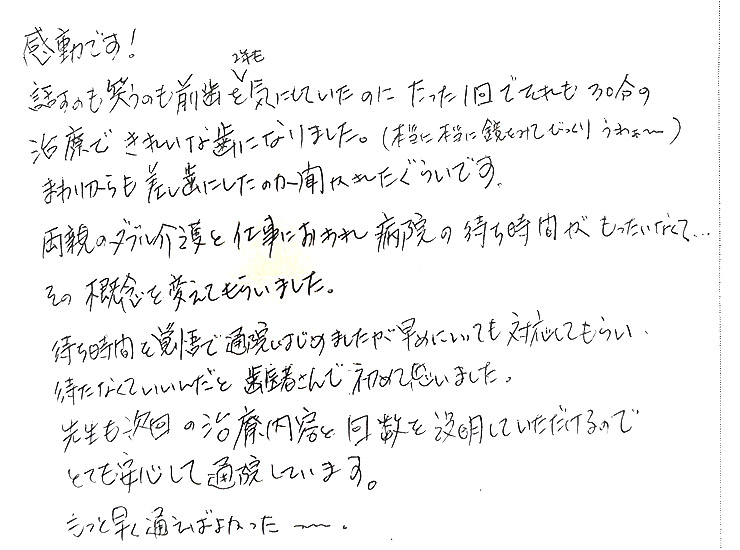 感動です！
話すのも笑うのも前歯を2年も気にしていたのに たった1回でそれも30分の
治療で きれいな歯になりました。(本当に本当に鏡をみてびっくり うわぁ〜)
まわりからも差し歯にしたのか聞かれたぐらいです。
両親のダブル介護と仕事におわれ 病院の待ち時間が もったいなくて…
その概念を変えてもらいました。
待ち時間を覚悟で通院はじめましたが早めにいっても対応してもらい、
待たなくていいんだと 歯医者さんで初めて思いました。
先生も次回の治療内容と回数を説明していただけるので
とても安心して通院しています。
もっと早く通えばよかった〜。